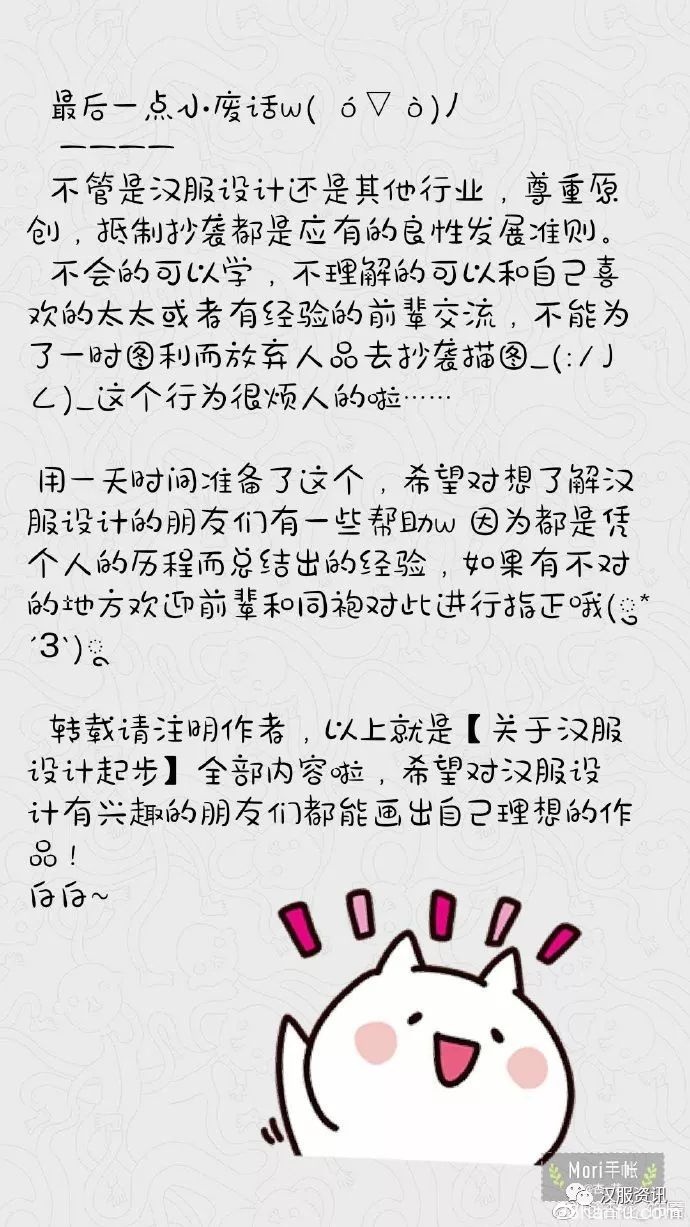 最后一点小废话w( ó▽ò)ﾉ
一一一一
不管是汉服设计还是其他行业，尊重原
创，抵制抄袭都是应有的良性发展准则。
不会的可以学，不理解的可以和自己喜
欢的太太或者有经验的前辈交流，不能为
了一时图利而放弃人品去抄袭描图_(:/」
乙)_这个行为很烦人的啦……
用一天时间准备了这个，希望对想了解汉
服设计的朋友们有一些帮助w 因为都是凭
个人的历程而总结出的经验，如果有不对
的地方欢迎前辈和同袍对此进行指正哦(ૢ*
´3`)ૢ
转载请注明作者，以上就是【关于汉服
设计起步】全部内容啦，希望对汉服设
计有兴趣的朋友们都能画出自己理想的作
品！
白白~
Mori手帐
汉服资讯